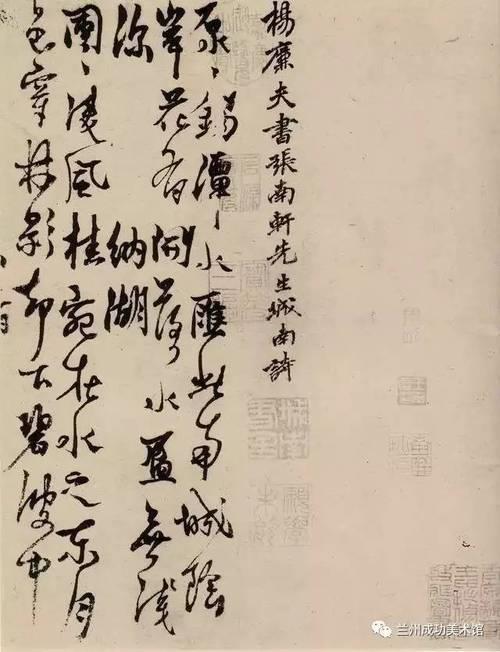 楊廉夫書張南軒先生城南詩
原〻錫潭〻水匯此南城陰
岸花有開落水盈無淺
深 納湖
團〻凌風桂宛在水之東月
色穿林影却下碧波中
兰州成功美术馆